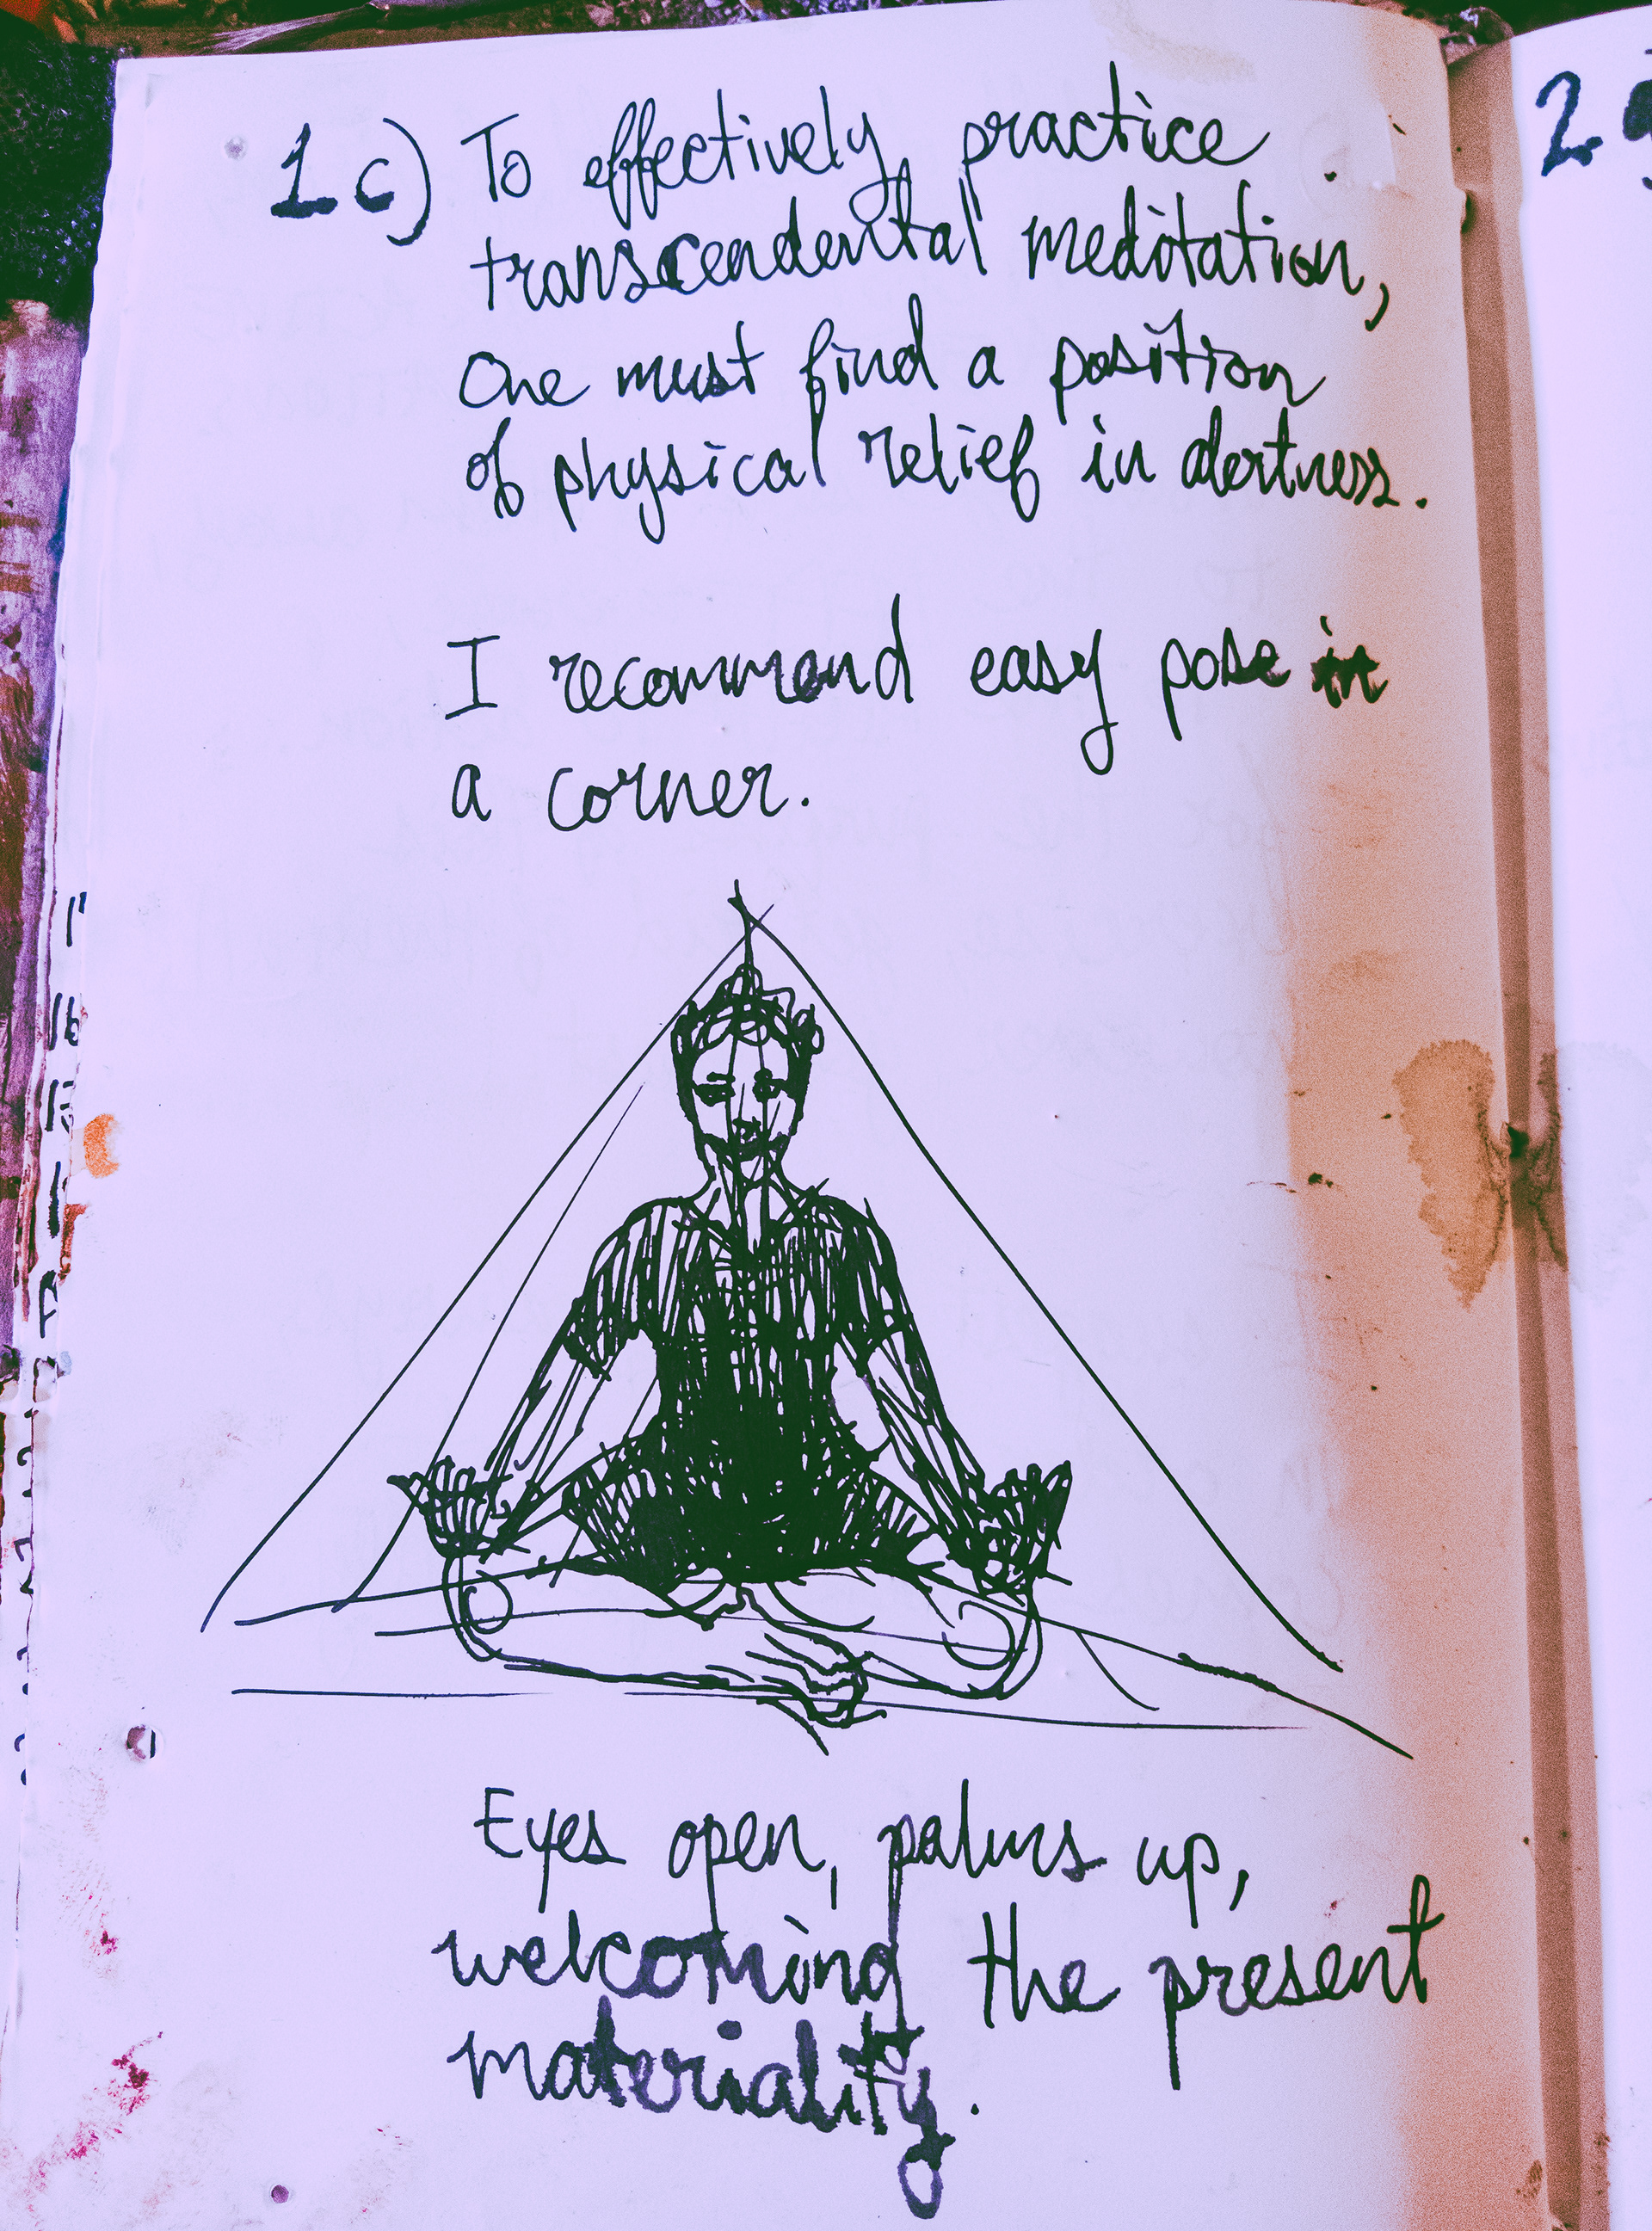 1c) To effectively practice
transcendental meditation,
One must find a position
of physical relief in alertness.
I recommend easy pose in
a corner.
Eyes open, palms up,
welcoming the present
materiality.
2
16